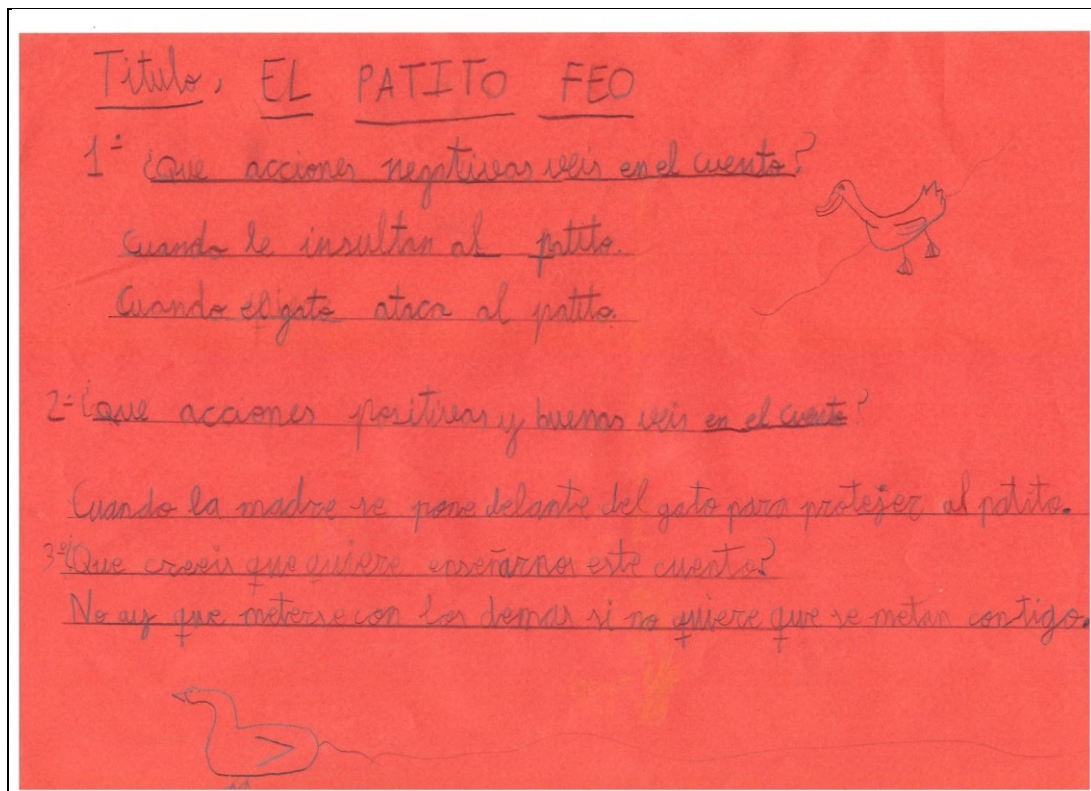 Titulo, EL PATITO FEO
1ª ¿Que acciones negativas veis en el cuento?
Cuando le insultan al patito.
Cuando el gato ataca al patito.
2ª ¿Que acciones positivas y buenas veis en el cuento?
Cuando la madre se pone delante del gato para protejer al patito.
3ª ¿Que creeis que quiere enseñarnos este cuento?
No ay que meterse con los demas si no quiere que se metan contigo.